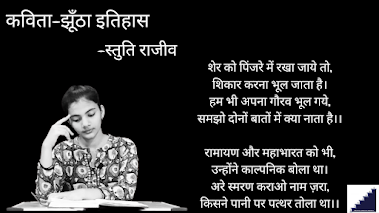 कविता-झूँठा इतिहास
-स्तुति राजीव
शेर को पिंजरे में रखा जाये तो,
शिकार करना भूल जाता है।
हम भी अपना गौरव भूल गये,
समझो दोनों बातों में क्या नाता है।।
रामायण और महाभारत को भी,
उन्होंने काल्पनिक बोला था।
अरे स्मरण कराओ नाम ज़रा,
किसने पानी पर पत्थर तोला था।।